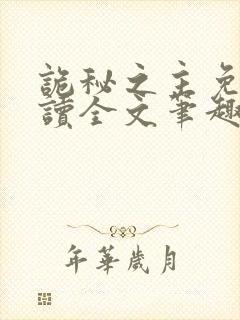 詭秘之主免
讀全文筆趣
年華歲月